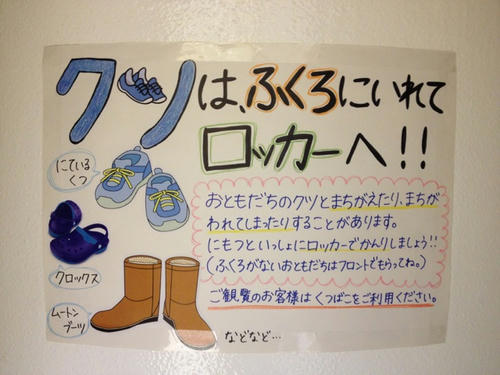 クツは、ふくろにいれて
ロッカーへ!!
にている
くつ
クロックス
ムートン
ブーツ
おともだちのクツとまちがえたり、まちが
われてしまったりすることがあります。
にもつといっしょにロッカーでかんりしましょう!!
(ふくろがないおともだちはフロントでもらってね。)
ご観覧のお客様はくつばこをご利用ください。
などなど…